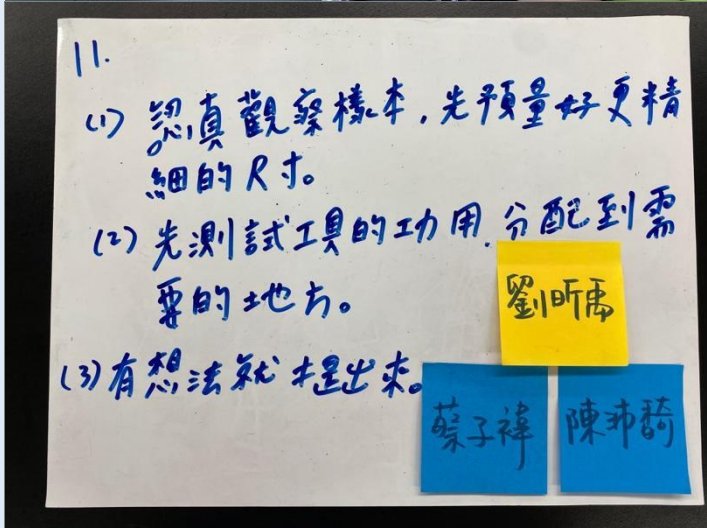 11.
(1) 認真觀察樣本,先預量好更精
細的尺寸。
(2) 先測試工具的功用,分配到需
要的地方。
(3) 有想法就提出來。
劉昕禹
蔡子褘
陳沛